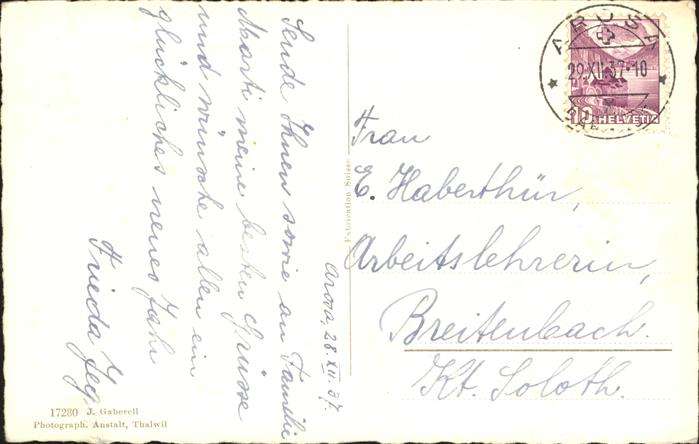 Arosa, 28.XII.37.
Sende Ihnen sowie an Familie
Marti meine besten Grüsse
und wünsche allen ein
glückliches neues Jahr
Frieda
Frau
E. Haberthür,
Arbeitslehrerin,
Breitenbach.
Kt. Soloth.
AROSA
29.XII.37-10
10 HELVETIA
17280 J. Gaberell
Photograph. Anstalt, Thalwil